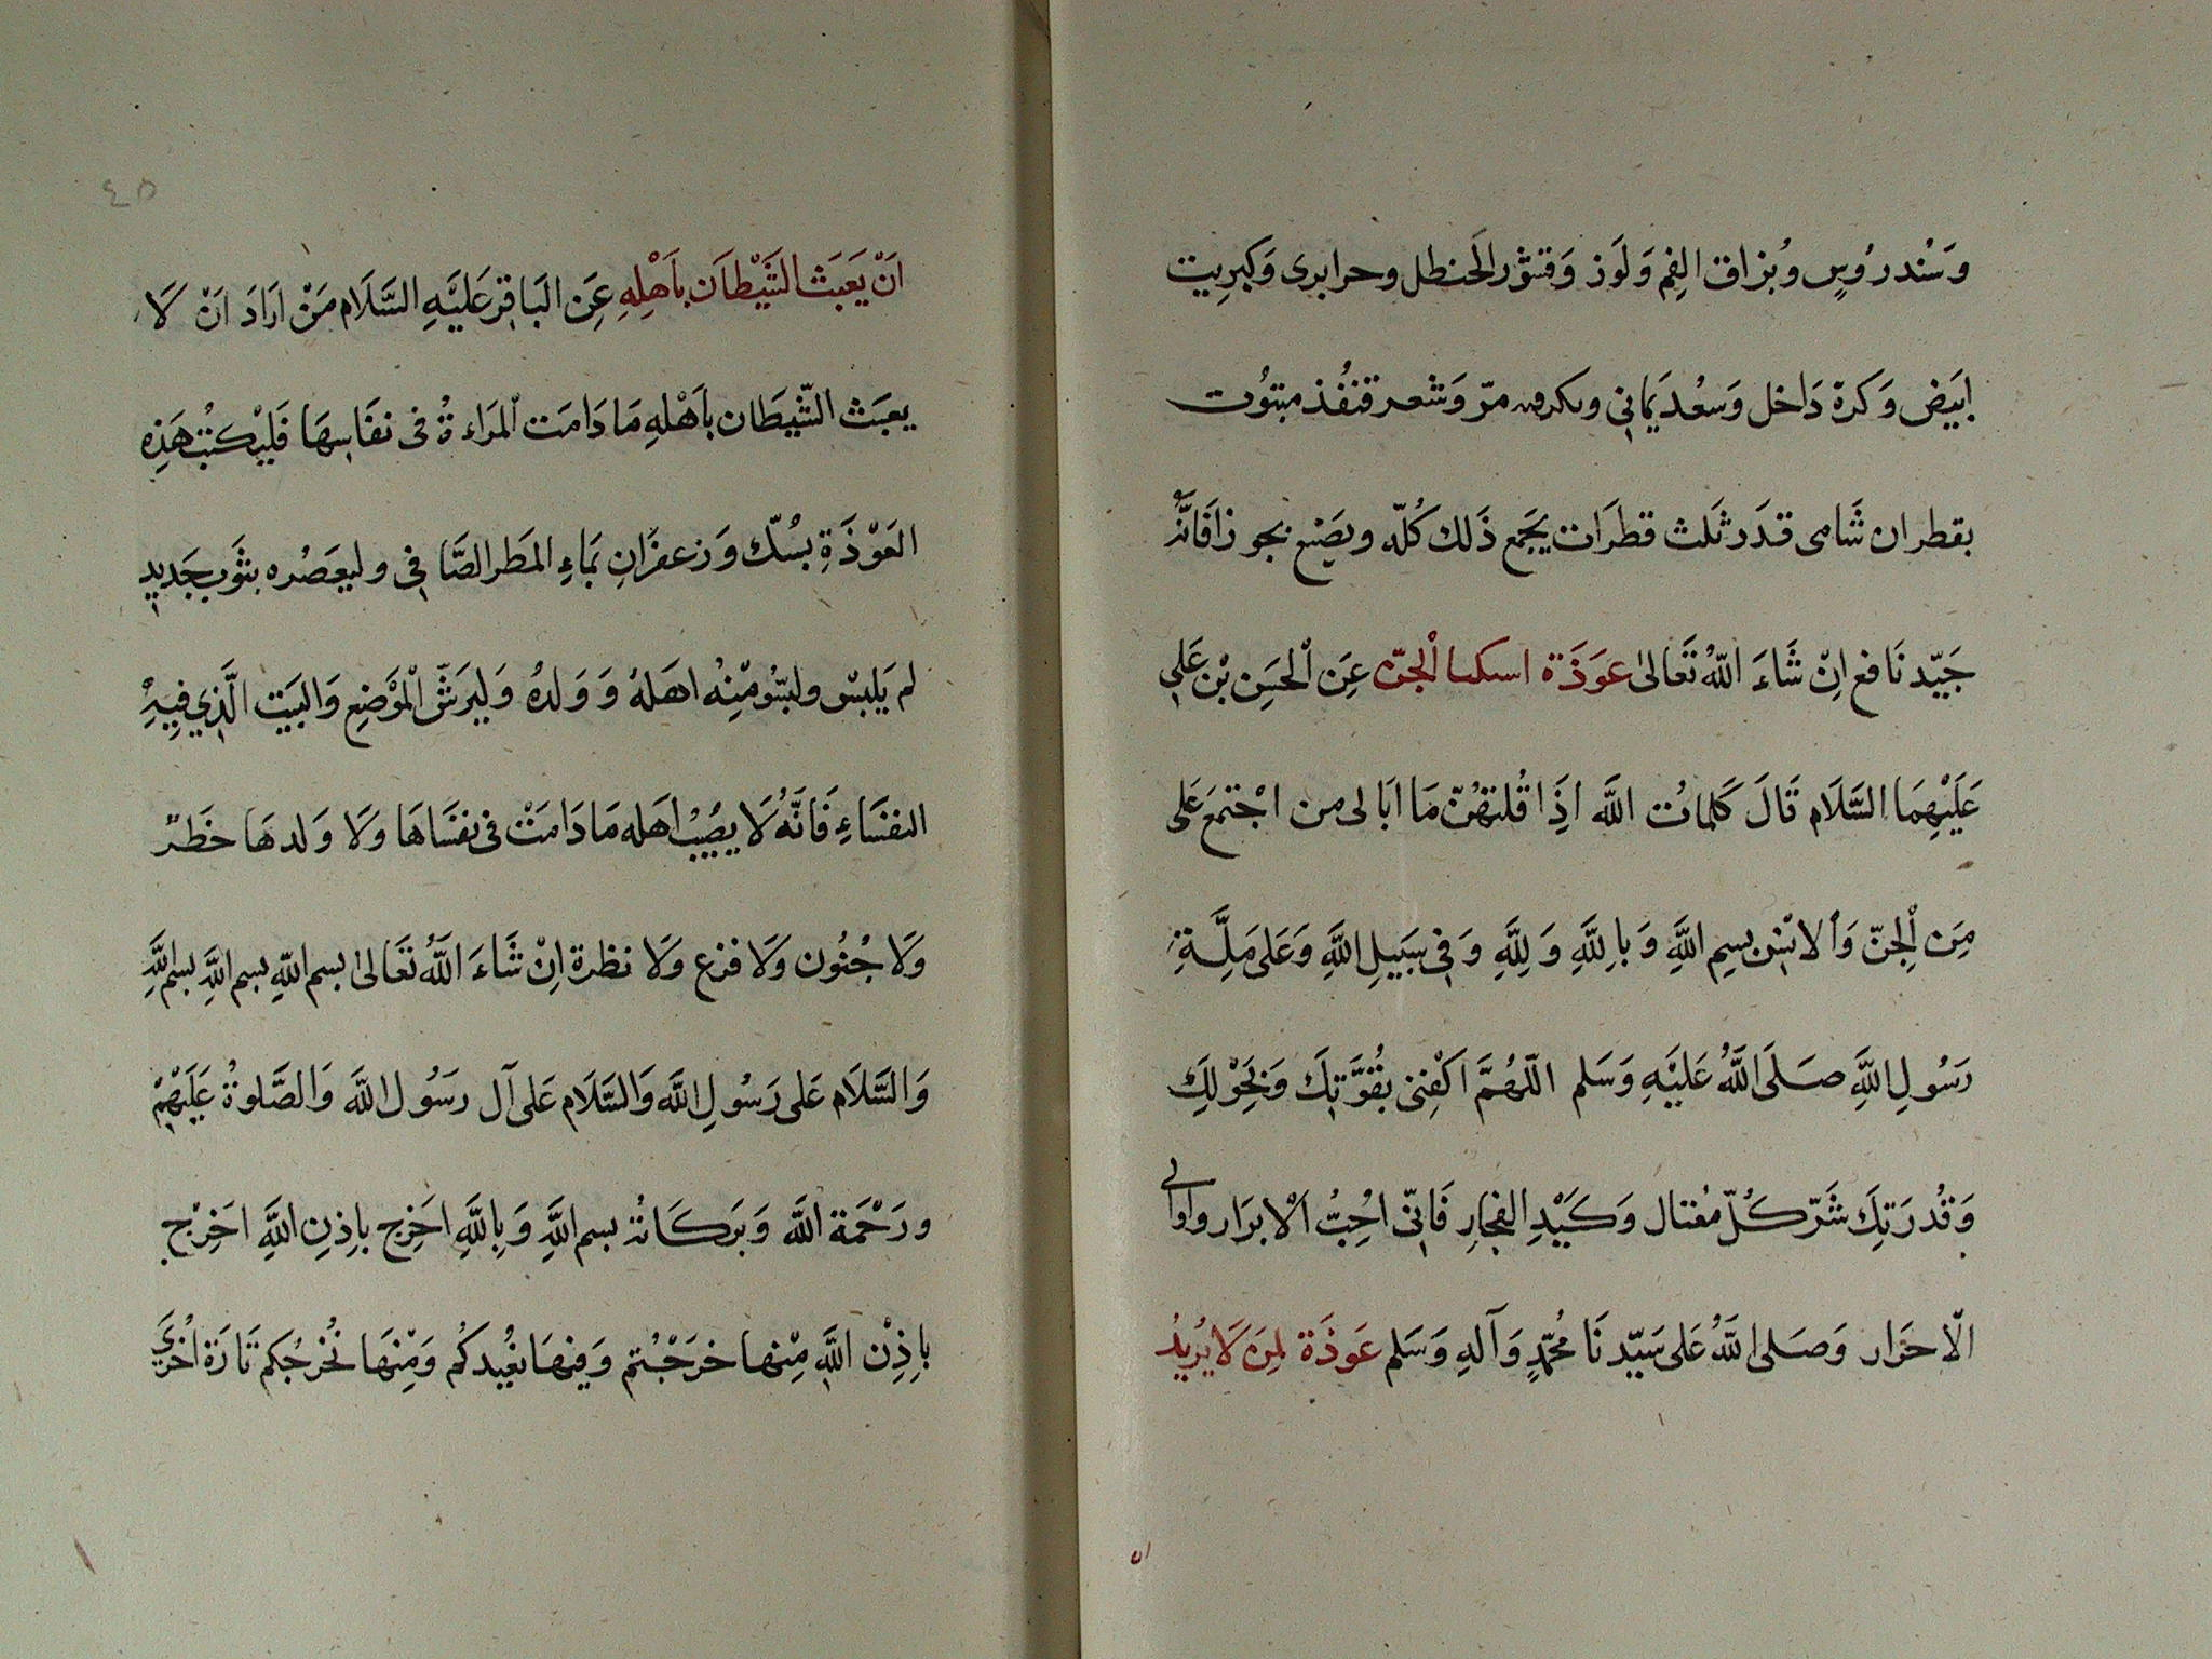 وَسُندرُوسٍ وبُزاق الفِم وَلَوز وَقشوْر الحَنظل وحرابرى وَكبرِيت
ابيَض وَكرة دَاخل وَسعُد يَمانىِ مرّ وَشعر قنفُذ مبتوُت
بقطران شَامى قدَر ثَلث قطرَات يجَمع ذَلك كُلّه ويصَنِع بخورا فَانَّهُ
جَيّد نَافع انِ شَاءَ اللّهُ تعَالىٰ عَوذَة الْجنّ عِنَ الْحسَنِ بْن عَلىِ
عَلَيْهِمَا السَّلَام قَالَ كَلماتُ اللَّه اذِا قُلتهُنّ مَا ابَالى من اجْتمعَ عَلى
مِنَ الْجِنّ وَالانسِ بِسِمِ اللَّهِ وَبِاللَّهِ وَلِلَّهِ وَفىِ سَبيَلِ اللَّهِ وَعَلى مَلِّةِ
رَسُولِ اللَّهِ صَلَى اللَّهُ عَليَهِ وَسَلم اللّهُمَّ اكَفْنِى بقُوَّتِكَ وَبحَوْلِكَ
وَقُدرَتِكَ شَرّ كُلّ مُغتال وَكَيْدِ الفجارِ فَانىّ احُبُّ الْابرَار واوالى
الّاخرَار وَصَلى اللَّهُ عَلى سَيّدنَا مُحمّدٍ وَآلهِ وَسَلم عَوذَة لمِنَ لَا يُريدُ
٤٥
انَْ يَعَبَث الشَيْطاَن باَهْلِهِ عِنَ البَاقِر عَليَهِ السَّلَام مَنْ ارَادَ انْ لَا
يعبَث الشّيطَان باَهْلهِ مَا دَامَت المرَاءةُ فى نفَاسهَا فَليْكتبُ هَذِهِ
العَوْذَةِ بمُسّك وَزعفرَانِ بمَاءِ المطَر الصَّافىِ وليعَصُره بثَوبٍ جَديدٍ
لم يَلبسْ وليسُومْنِهُ اهَلهُ وَوَلدهُ وَليرَشّ الموْضِعِ وَالبيَت الَّذِي فيِهِْ
النفسَاءِ فَانَّهُ لَا يصُيبُْ اهَله مَا دَامَتْ فى نفسَاهَا وَلَا وَلدهَا خطَر
وَلَا جُنوُن وَلَا فزع وَلَا نظرة انِْ شَاءَ اللَّهُ تعَالىٰ بسم اللّهِ بسم اللَّهِ بسم اللَّهِ
وَالسَّلَام عَلى رَسُولِ اللَّه وَالسَّلَام عَلى آل رسَوُل اللَّه وَالصَّلوةُ عَلَيْهِمْ
ورَحْمَة اللَّه وَبَرَكَاتهُ بسم اللَّهِ وَبِاللَّهِ اخَرِج باِذِنِ اللَّهِ اخَرِْج
باِذِنْ اللَّهِ مِنْها خرَجْتُم وَفيهَا نعُيدكُم وَمِنْهَا نُخرجُكم تَارَة اُخْرىَ